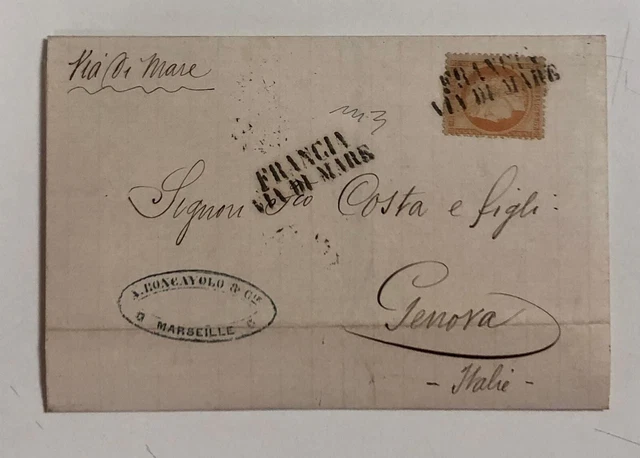 Via di Mare
FRANCIA
VIA DI MARE
FRANCIA
VIA DI MARE
Signori Fco Costa e figli:
A. RONCAYOLO & Cie
MARSEILLE
Genova
- Italie -